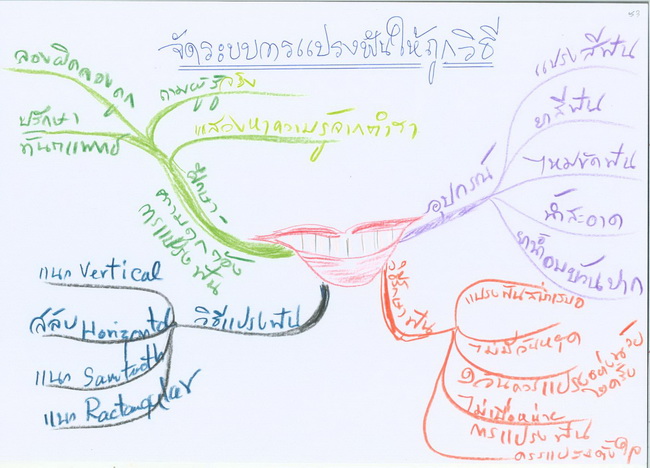 จัดระบบการแปรงฟันให้ถูกวิธี
ลองผิดลองถูก
ถามผู้รู้จริง
ปรึกษา
ทันตแพทย์
แสวงหาความรู้จากตำรา
ศึกษา-
ความถูกต้อง
การแปรงฟัน
อุปกรณ์
แปรงสีฟัน
ยาสีฟัน
ไหมขัดฟัน
น้ำสะอาด
ยาน้ำอมบ้วนปาก
วิธีแปรงฟัน
แนว Vertical
สลับ Horizontal
แนว
แนว Ractangular
ฟัน
แปรงฟันสม่ำเสมอ
ไม่มีวันหยุด
1 วันควรแปรงอย่างน้อย
2 ครั้ง
ไม่เบื่อหน่าย
การแปรงฟัน